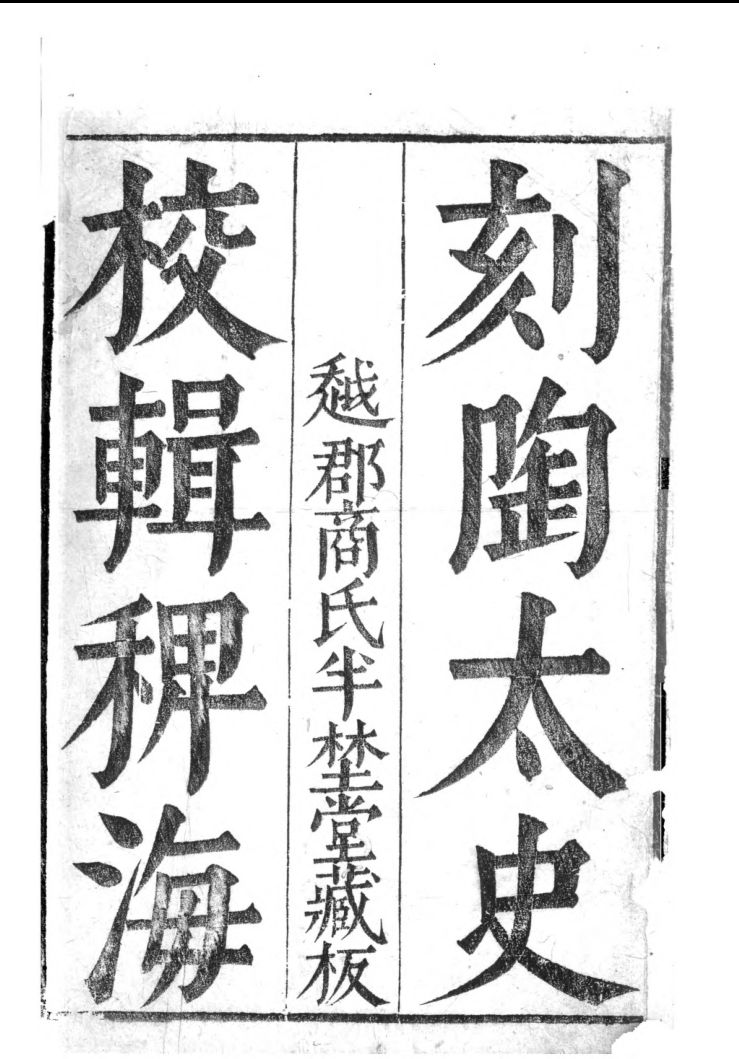 刻陶太史
校輯稗海
越郡商氏半埜堂藏板